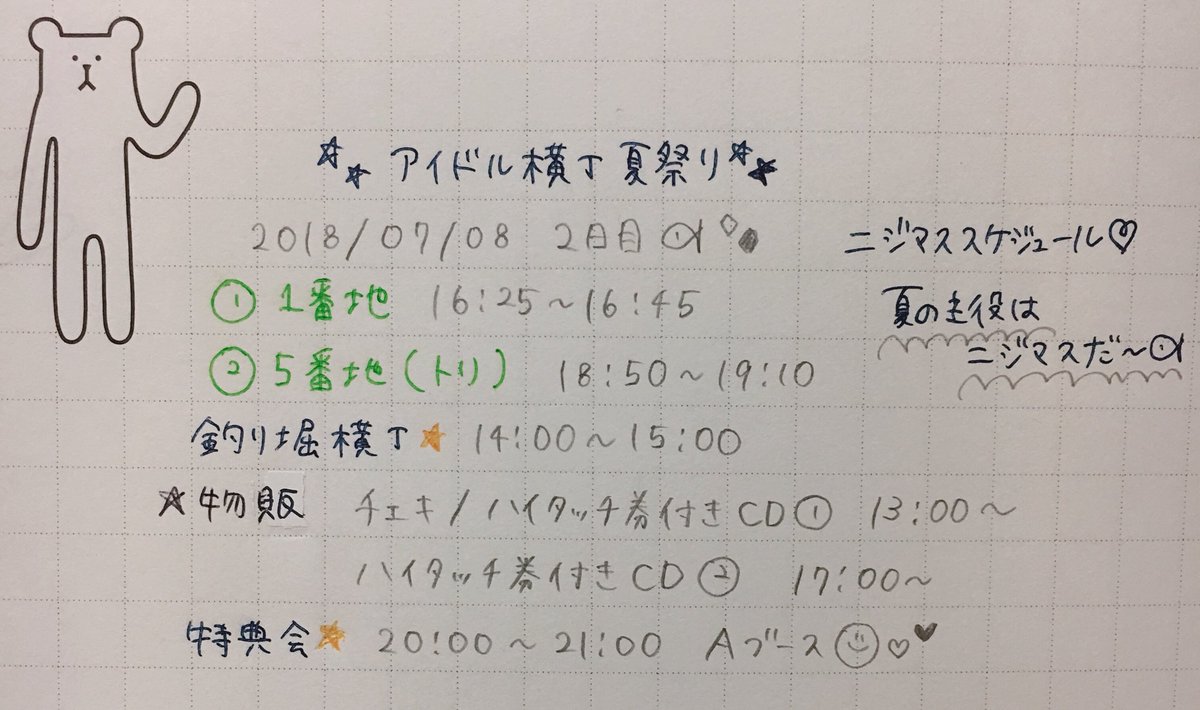 ☆☆アイドル横丁夏祭り☆★
2018/07/08 2日目
ニジマススケジュール♡
① 1番地 16:25～16:45
夏の主役は
ニジマスだ～
② 5番地(トリ) 18:50～19:10
釣り堀横丁★ 14:00～15:00
☆物販 チェキ/ハイタッチ券付きCD① 13:00～
ハイタッチ券付きCD② 17:00～
特典会★ 20:00～21:00 Aブース♡♥